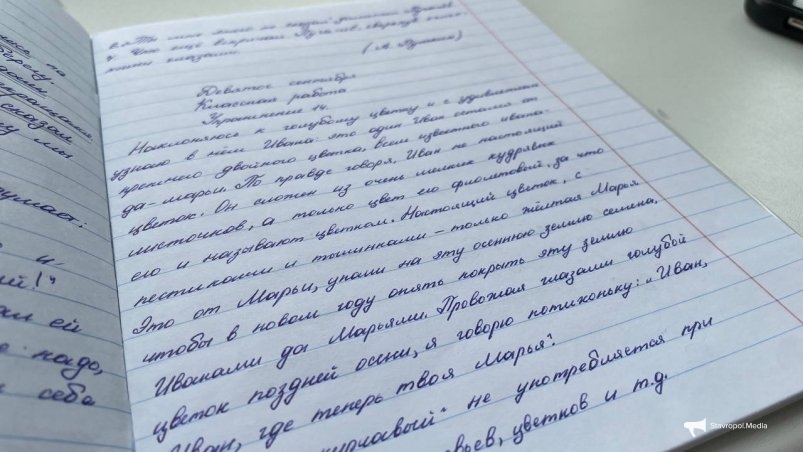 (А. Пушкин)
Девятое сентября
Классная работа
Упражнение 14.
Наклоняюсь к голубому цветку и с удивлением
узнаю в нём Ивана: это один Иван остался от
прежнего двойного цветка, всем известного ивана-
да-марьи. По правде говоря, Иван не настоящий
цветок. Он сложен из очень мелких кудрявых
листочков, а только цвет его фиолетовый, за что
его и называют цветком. Настоящий цветок, с
пестиками и тычинками – только жёлтая Марья.
Это от Марьи, упали на эту осеннюю землю семена,
чтобы в новом году опять покрыть эту землю
Иванами да Марьями. Провожая глазами голубой
цветок поздней осени, я говорю потихоньку: „Иван,
Иван, где теперь твоя Марья?
не употребляется при
цветков и т.д.
сказал
и
ей
надо,
себя
Stavropol.Media